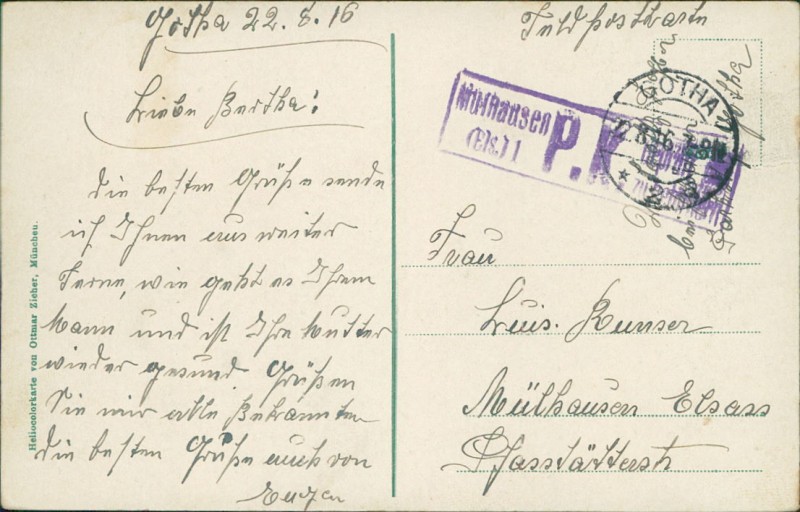 Gotha 22.8.16
Liebe Bertha!
die besten Grüße sende
ich Ihnen aus weiter
Ferne, wie geht es Ihrem
Mann und ist Ihre Mutter
wieder gesund. Grüßen
Sie mir alle Bekannten
die besten Grüße auch von
Eugen
Heliocolorkarte von Ottmar Zieher, München.
Feldpostkarte
Mülhausen
(Els.) 1
P.K.
GOTHA
22.8.16. 7-8N
* 2
Gotha
Frau
Luis. Kunser
Mülhausen Elsass
Pfasstätterstr